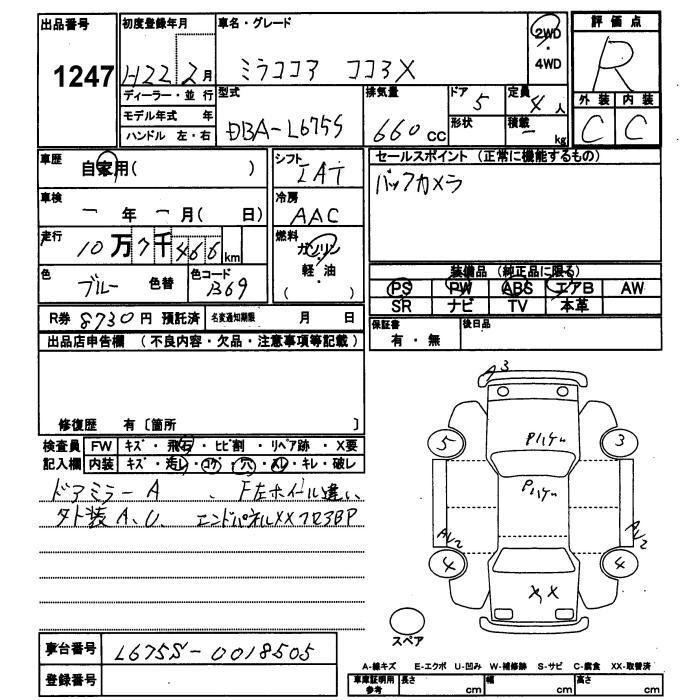 出品番号 1247
初度登録年月 H22 2月
車名・グレード ミラココア ココアX
2WD ・ 4WD
評価点 R
外装 内装
C C
ディーラー・並行
モデル年式 年
ハンドル 左・右
型式 DBA-L675S
排気量 660cc
ドア 5
形状
定員 4人
積載 ー kg
車歴 自家用( )
車検 ー 年 ー 月( 日)
走行 10万7千466km
色 ブルー 色替
色コード B69
シフト IAT
冷房 AAC
燃料 ガソリン ・ 軽・油 ( )
セールスポイント (正常に機能するもの)
バックカメラ
装備品 (純正品に限る)
PS PW ABS エアB AW
SR ナビ TV 本革
R券 8730円 預託済 名変通知期限 月 日
保証書 有・無
後日品
出品店申告欄 (不良内容・欠品・注意事項等記載)
修復歴 有〔箇所 〕
検査員記入欄
FW キズ・飛石・ヒビ割・リペア跡・X要
内装 キズ・汚レ・コゲ・穴・スレ・キレ・破レ
ドアミラーA 、F左ホイル違い
外装A、U、 エンドパネルXX
A3
5 3
Pハゲ
Pハゲ
4 4
XX
スペア
車台番号 L675S-0018505
登録番号
A-線キズ E-エクボ U-凹み W-補修跡 S-サビ C-腐食 XX-取替済
車庫証明用参考 長さ cm 幅 cm 高さ cm